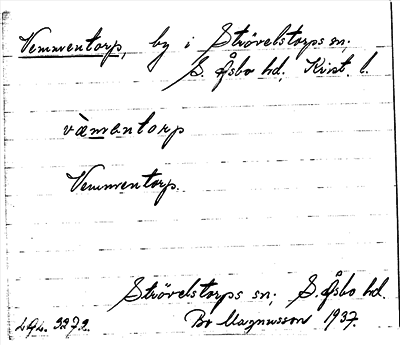 Vemmentorp, by i Strövelstorps sn;
S. Åsbo hd, Krist. l.
vä̀mentorp
Vemmentorp.
Strövelstorps sn; S. Åsbo hd.
Bo Magnusson 1937.